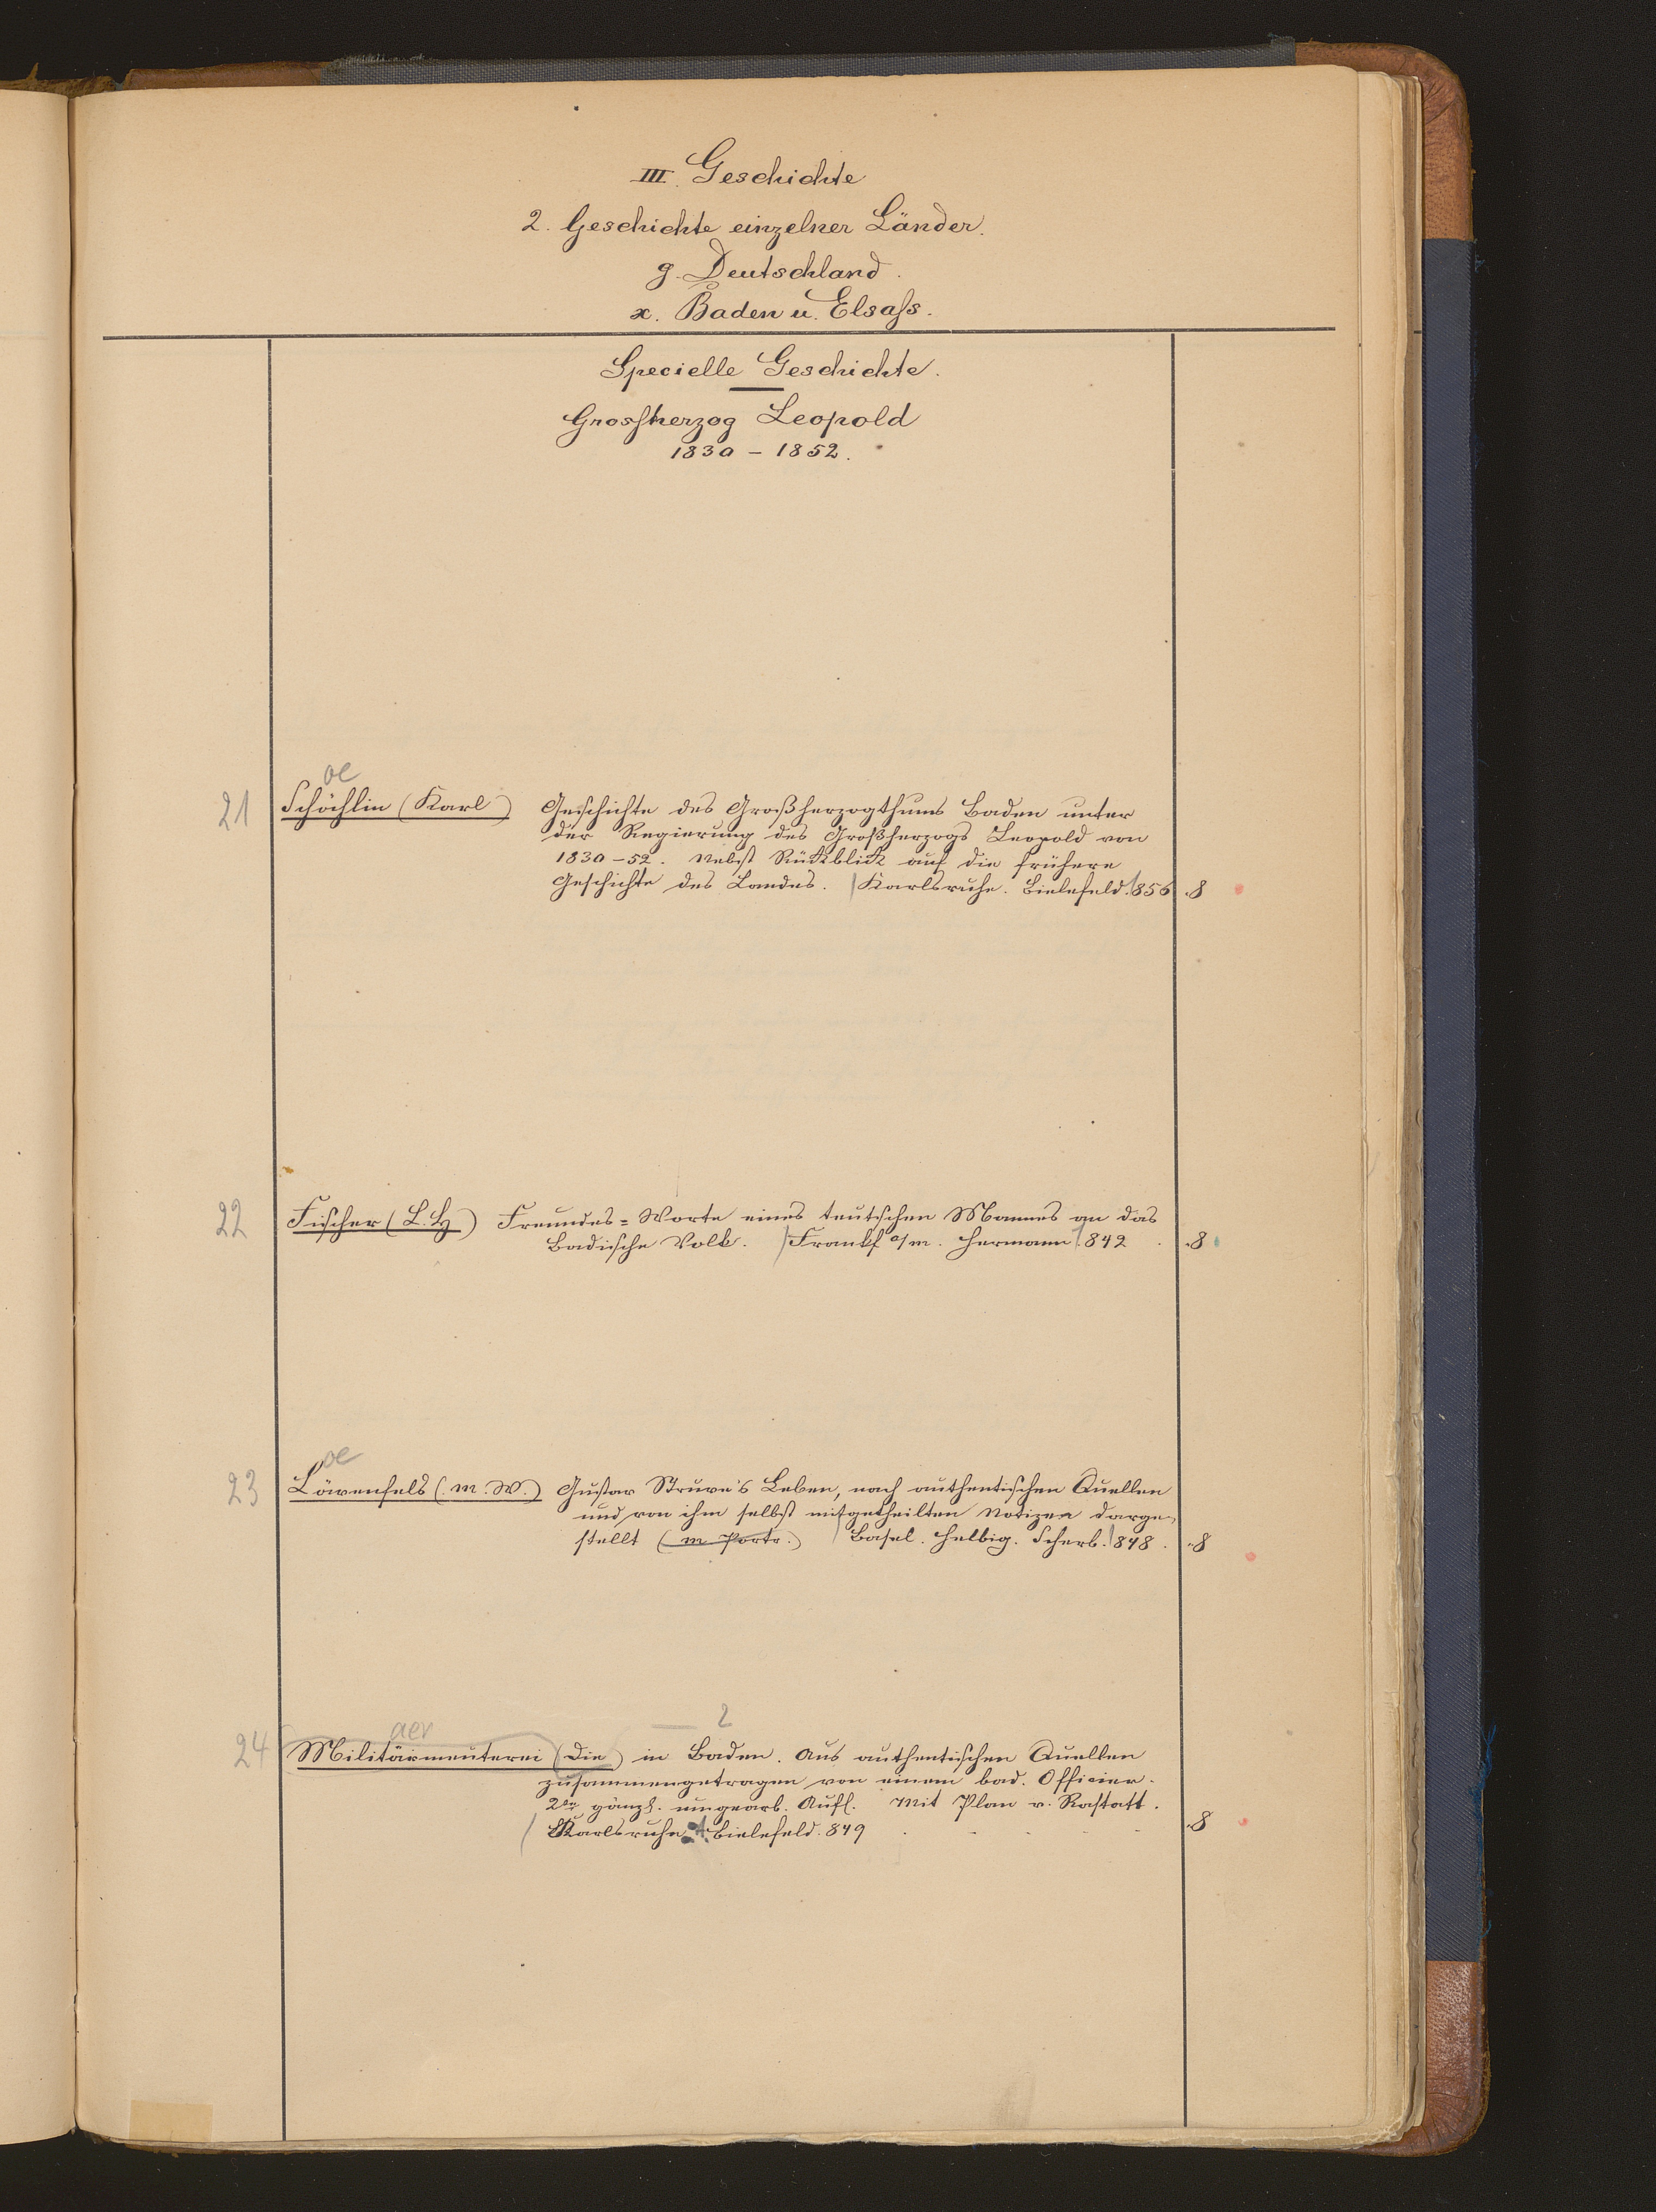 III. Geschichte
2. Geschichte einzelner Länder.
g. Deutschland.
x. Baden u. Elsaſs.
Specielle Geschichte.
Grosſherzog Leopold
1830 - 1852.
oe
21 Schöchlin (Karl) Geschichte des Großherzogthums Baden unter
der Regierung des Großherzogs Leopold von
1830-52. Nebst Rückblick auf die frühere
Geschichte des Landes. | Karlsruhe. Bielefeld. 1856 .8
22 Fischer (L. H) Freundes=Worte eines teutschen Mannes an das
Badische Volk. | Frankf a/m. Hermann 1842 . .8
oe
23 Löwenfels (M. W.) Gustav Struve's Leben, nach authentischen Quellen
und von ihm selbst mitgetheilten Notizen darge-
stellt (m Portr.) | Basel. Helbig. Scherb. 1848. .8
aer 2
24 Militärmeuterei (Die) in Baden. Aus authentischen Quellen
zusammengetragen von einem bad. Officier.
2te gänzl. umgearb. Aufl. Mit Plan v. Rastatt.
| Karlsruhe. A. Bielefeld. 849 . - - - - .8